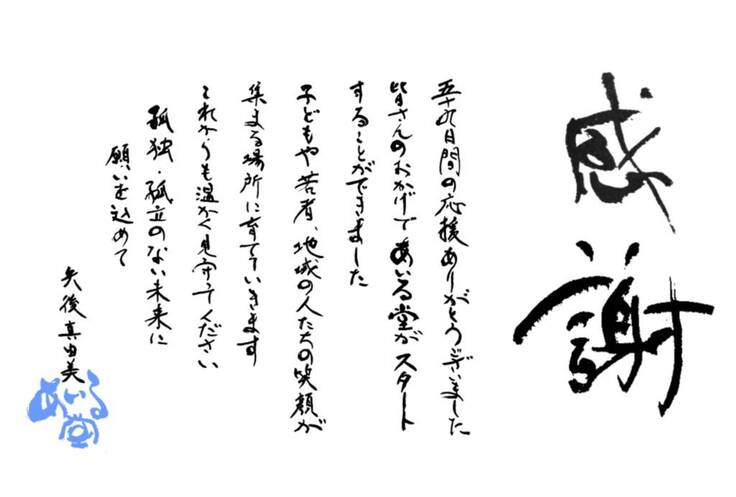 感謝
五十九日間の応援ありがとうございました
皆さんのおかげであいる堂がスタート
することができました
子どもや若者、地域の人たちの笑顔が
集まる場所に育てていきます
これからも温かく見守ってください
孤独・孤立のない未来に
願いを込めて
矢後真由美
あいる堂